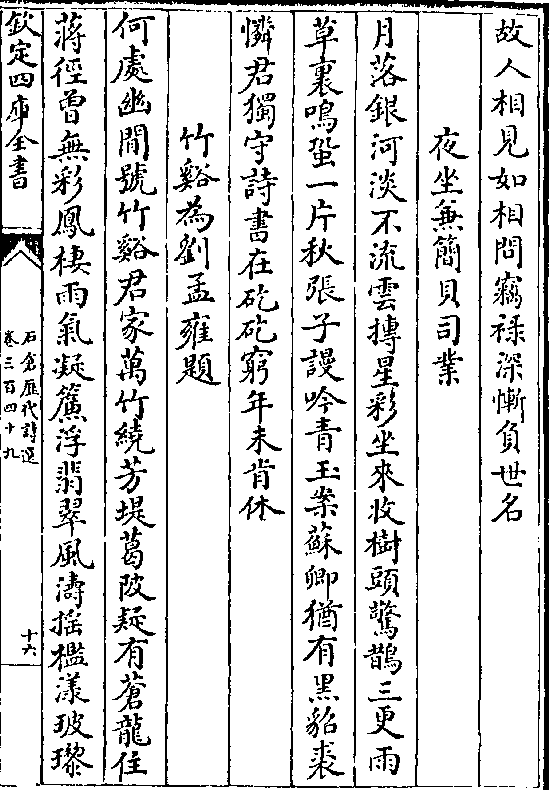 故人相見如相問竊祿深慚負世名
夜坐兼簡貝司業
月落銀河淡不流雲摶星彩坐來收樹頭驚鵲三更雨
草裏鳴蛩一片秋張子謾吟青玉案蘇卿猶有黑貂裘
憐君獨守詩書在矻矻窮年未肯休
竹谿為劉孟雍題
何處幽閒號竹谿君家萬竹繞芳堤葛陂疑有蒼龍住
蔣徑曾無彩鳳棲雨氣凝簾浮翡翠風濤搖檻漾玻瓈
欽定四庫全書
石倉歷代詩選
卷三百四十九
十六